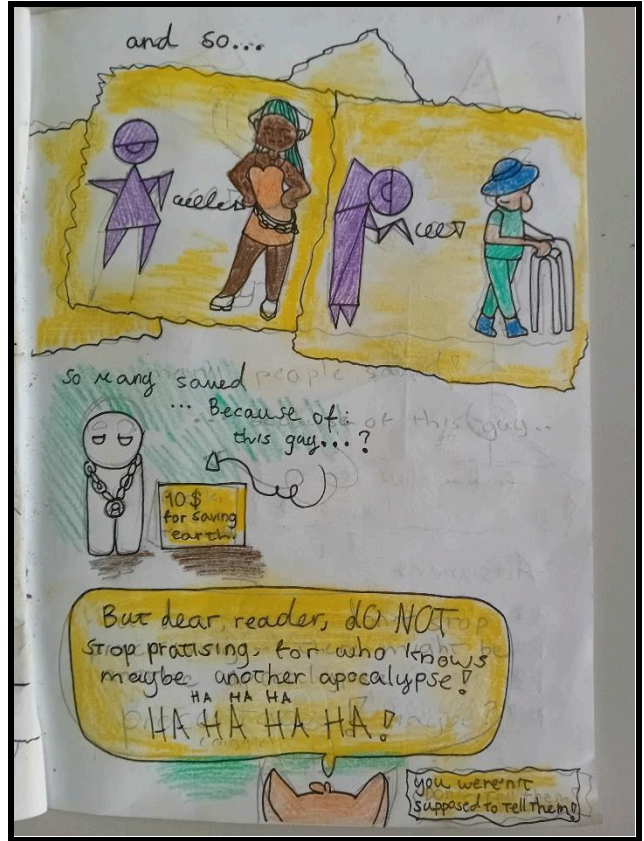 and so...
So many saved
... Because of
this guy...?
10$
for saving
earth.
But dear, reader, dO NOT
stop practising, for who knows
maybe another apocalypse!
HA HA HA
HA HA HA HA!
you weren't
supposed to tell them!